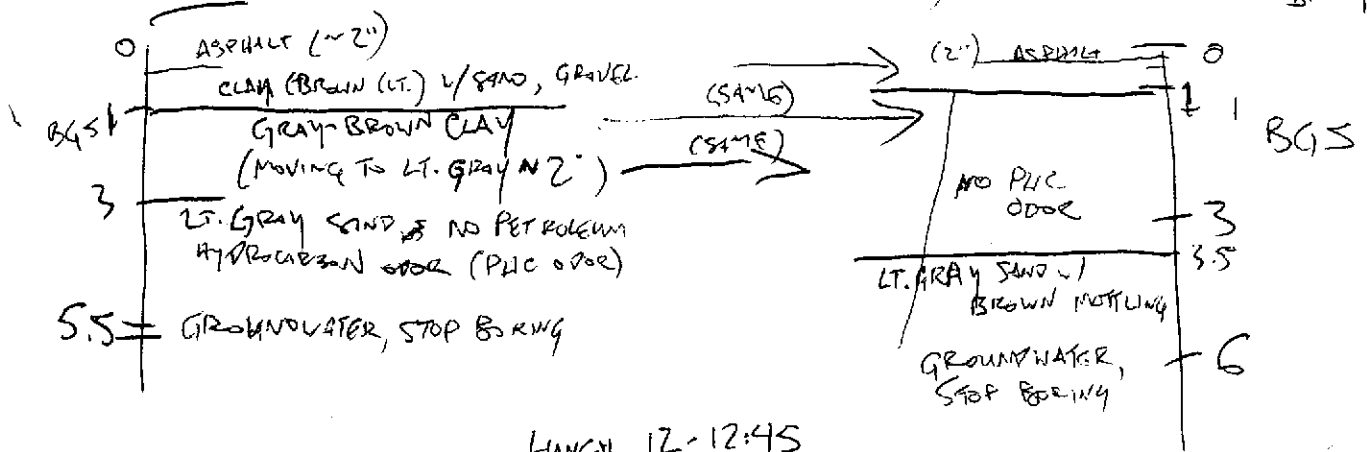 0 ASPHALT (~2")
CLAY (BROWN (LT.) W/ SAND, GRAVEL.
BGS 1
GRAY-BROWN CLAY
(MOVING TO LT. GRAY ~ 2')
3
LT. GRAY SAND NO PETROLEUM
HYDROCARBON ODOR (PHC ODOR)
5.5 GROUNDWATER, STOP BORING
(SAME)
(SAME)
(2") ASPHALT 0
1
BGS
NO PHC
ODOR
3
3.5
LT. GRAY SAND W/
BROWN MOTTLING
GROUNDWATER, 6
STOP BORING
LUNCH 12-12:45